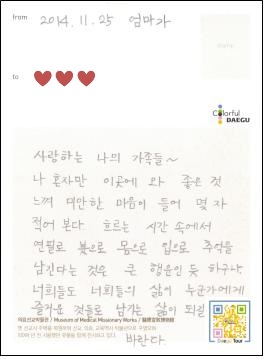 from 2014. 11. 25 엄마가
to
Colorful
DAEGU
사랑하는 나의 가족들~
나 혼자만 이곳에 와 좋은 것
느껴 미안한 마음이 들어 몇 자
적어 본다 흐르는 시간 속에서
연필로 붓으로 몸으로 입으로 추억을
남긴다는 것은 큰 행운인 듯 하구나
너희들도 너희들의 삶이 누군가에게
즐거운 것들로 남기는 삶이 되길
바란다
의료선교박물관 / Museum of Medical Missionary Works / 醫療宣敎博物館
Daegu Tour